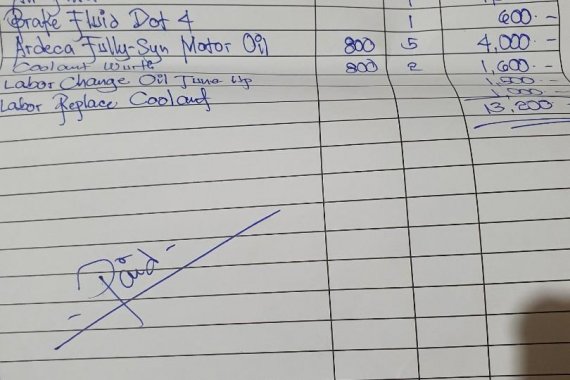 Brake Fluid Dot 4 1 600.-
Ardeca Fully-Syn Motor Oil 800 5 4,000.-
Coolant Wurth 800 2 1,600.-
Labor Change Oil Tune Up
Labor Replace Coolant 1,000.-
13,200-
- Paid -